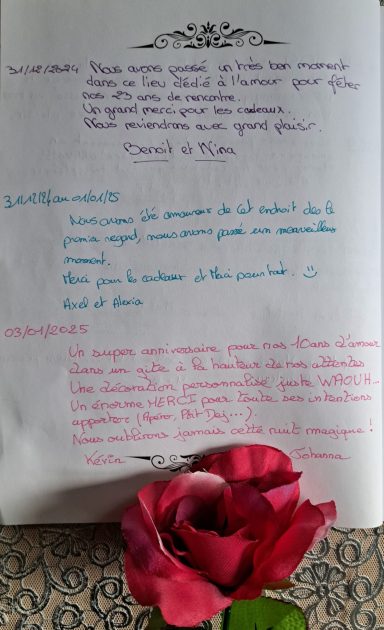 31/12/2024 Nous avons passé un très bon moment
dans ce lieu dédié à l'amour pour fêter
nos 23 ans de rencontre.
Un grand merci pour les cadeaux.
Nous reviendrons avec grand plaisir.
Benoit et Nina
31/12/24 au 01/01/25
Nous avons été amoureux de cet endroit dès le
premier regard, nous avons passé un merveilleux
moment.
Merci pour les cadeaux et Merci pour tout. :)
Axel et Alexia
03/01/2025
Un super anniversaire pour nos 10 ans d'amour
dans un gîte à la hauteur de nos attentes
Une décoration personnalisé juste WAOUH...
Un énorme MERCI pour toute ses intentions
apporter (Apéro, Ptit Dej...).
Nous oublirons jamais cette nuit magique !
Kévin Johanna